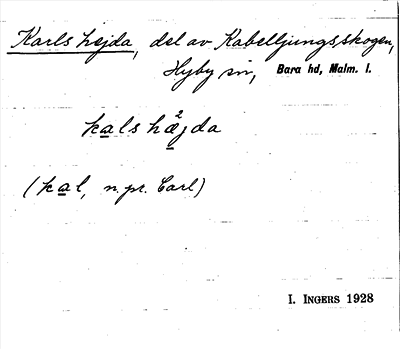 Karls hejda, del av Kabelljungsskogen,
Hyby sn, Bara hd, Malm. l.
kals hæ²jda
(kal, n.pr. Carl)
I. INGERS 1928